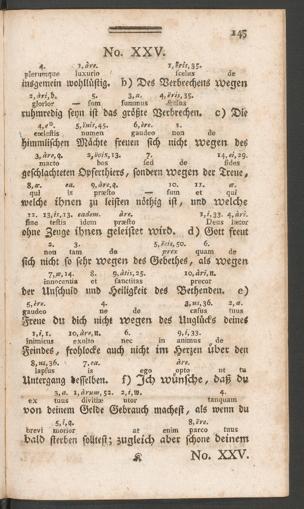 145
No. XXV.
4. 1, âre. 1, ĕris, 35.
plerumque luxurio scelus de
insgemein wohllüstig. b) Des Verbrechens wegen
2, âri, b. 3, a. 4, ĕris, 35.
glorior — sum summus scelus
ruhmredig seyn ist das größte Verbrechen. c) Die
4, 5, ĭnis, 45. 6, ēre. 1.
coelestis numen gaudeo non de
himmlischen Mächte freuen sich nicht wegen des
3, âre, q. 2, 13. 7. 14, ei, 29.
macto bos sed de fides
geschlachteten Opferthiers, sondern wegen der Treue,
8, æ. ea. 9, âre, q. 10. 11. æ.
qui is præsto — sum et qui
welche ihnen zu leisten nöthig ist, und welche
12. 13, is, 13. eadem. âre. 1, i, 33. 4, âri.
sine testis idem præsto Deus lætor
ohne Zeuge ihnen geleistet wird. d) Gott freut
2. 3. 5, ĕcis, 50. 6.
non tam de prex quam de
sich nicht so sehr wegen des Gebethes, als wegen
7, æ, 14. 8. 9, âtis, 25. 10, âri, n.
innocentia et sanctitas precor
der Unschuld und Heiligkeit des Bethenden. e)
5, ēre. 4. 3, us, 36. 2, a.
gaudeo ne de casus tuus
Freue du dich nicht wegen des Unglücks deines
1, i, 1. 10, âre, n. 6. 9, i, 33.
inimicus exulto nec in animus de
Feindes, frohlocke auch nicht im Herzen über den
8, us, 36. 7, ea. âre.
lapsus is ego opto ut tu
Untergang desselben. f) Ich wünsche, daß du
3, a. 1, ârum, 52. 2, i, w. 4.
ex tuus divitiæ utor tanquam
von deinem Gelde Gebrauch machest, als wenn du
5, i, q. 8, ĕre.
brevi morior at enim parco tuus
bald sterben solltest; zugleich aber schone deinem
K No. XXV.